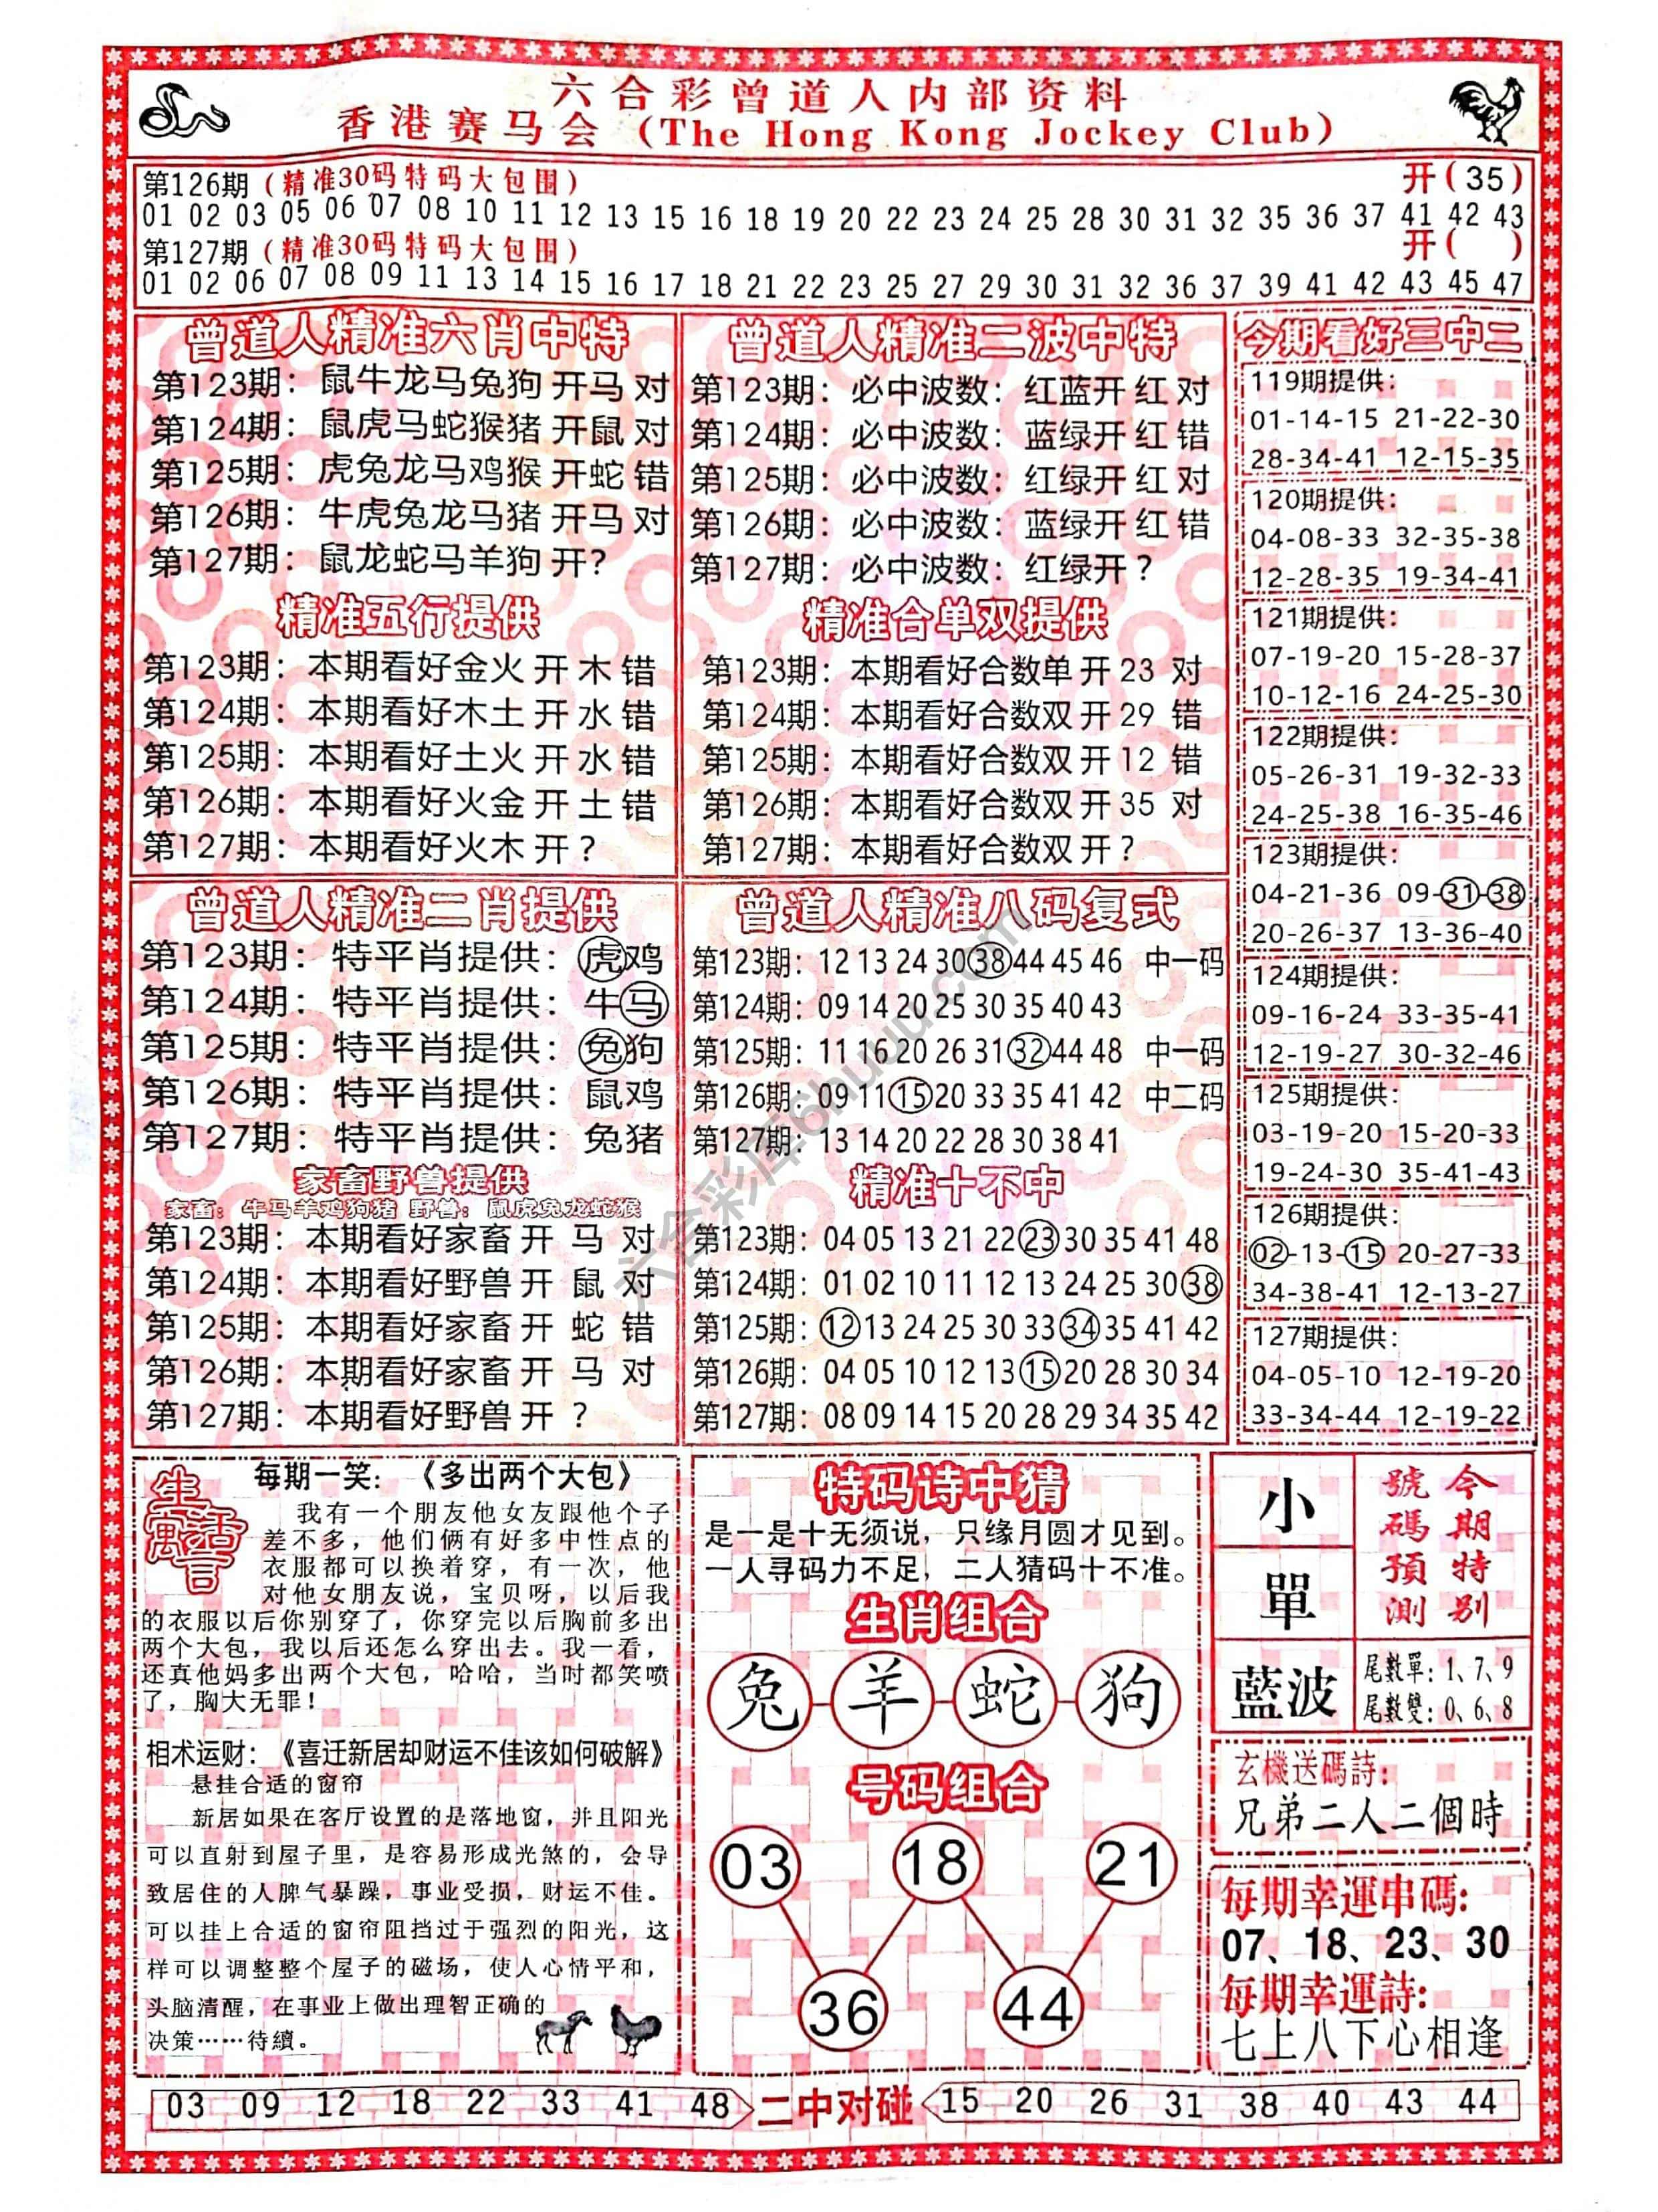 六合彩曾道人内部资料
香港赛马会（The Hong Kong Jockey Club）
第126期（精准30码特码大包围） 开（35）
01 02 03 05 06 07 08 10 11 12 13 15 16 18 19 20 22 23 24 25 28 30 31 32 35 36 37 41 42 43
第127期（精准30码特码大包围） 开（ ）
01 02 06 07 08 09 11 13 14 15 16 17 18 21 22 23 25 27 29 30 31 32 36 37 39 41 42 43 45 47
曾道人精准六肖中特
第123期：鼠牛龙马兔狗 开马 对
第124期：鼠虎马蛇猴猪 开鼠 对
第125期：虎兔龙马鸡猴 开蛇 错
第126期：牛虎兔龙马猪 开马 对
第127期：鼠龙蛇马羊狗 开？
精准五行提供
第123期：本期看好金火 开 木 错
第124期：本期看好木土 开 水 错
第125期：本期看好土火 开 水 错
第126期：本期看好火金 开 土 错
第127期：本期看好火木 开？
曾道人精准二波中特
第123期：必中波数：红蓝开 红 对
第124期：必中波数：蓝绿开 红 错
第125期：必中波数：红绿开 红 对
第126期：必中波数：蓝绿开 红 错
第127期：必中波数：红绿开？
精准合单双提供
第123期：本期看好合数单 开 23 对
第124期：本期看好合数双 开 29 错
第125期：本期看好合数双 开 12 错
第126期：本期看好合数双 开 35 对
第127期：本期看好合数双 开？
今期看好三中二
119期提供：
01-14-15 21-22-30
28-34-41 12-15-35
120期提供：
04-08-33 32-35-38
12-28-35 19-34-41
121期提供：
07-19-20 15-28-37
10-12-16 24-25-30
122期提供：
05-26-31 19-32-33
24-25-38 16-35-46
123期提供：
04-21-36 09-31-38
20-26-37 13-36-40
124期提供：
09-16-24 33-35-41
12-19-27 30-32-46
125期提供：
03-19-20 15-20-33
19-24-30 35-41-43
126期提供：
02-13-15 20-27-33
34-38-41 12-13-27
127期提供：
04-05-10 12-19-20
33-34-44 12-19-22
曾道人精准二肖提供
第123期：特平肖提供：虎鸡
第124期：特平肖提供：牛马
第125期：特平肖提供：兔狗
第126期：特平肖提供：鼠鸡
第127期：特平肖提供：兔猪
家畜野兽提供
家畜：牛马羊鸡狗猪 野兽：鼠虎兔龙蛇猴
第123期：本期看好家畜 开 马 对
第124期：本期看好野兽 开 鼠 对
第125期：本期看好家畜 开 蛇 错
第126期：本期看好家畜 开 马 对
第127期：本期看好野兽 开 ？
曾道人精准八码复式
第123期：12 13 24 30 38 44 45 46 中一码
第124期：09 14 20 25 30 35 40 43
第125期：11 16 20 26 31 32 44 48 中一码
第126期：09 11 15 20 33 35 41 42 中二码
第127期：13 14 20 22 28 30 38 41
精准十不中
第123期：04 05 13 21 22 23 30 35 41 48
第124期：01 02 10 11 12 13 24 25 30 38
第125期：12 13 24 25 30 33 34 35 41 42
第126期：04 05 10 12 13 15 20 28 30 34
第127期：08 09 14 15 20 28 29 34 35 42
六合彩库6huuu.com
生活寓言
每期一笑：《多出两个大包》
我有一个朋友他女友跟他个子
差不多，他们俩有好多中性点的
衣服都可以换着穿，有一次，他
对他女朋友说，宝贝呀，以后我
的衣服以后你别穿了，你穿完以后胸前多出
两个大包，我以后还怎么穿出去。我一看，
还真他妈多出两个大包，哈哈，当时都笑喷
了，胸大无罪！
相术运财：《喜迁新居却财运不佳该如何破解》
悬挂合适的窗帘
新居如果在客厅设置的是落地窗，并且阳光
可以直射到屋子里，是容易形成光煞的，会导
致居住的人脾气暴躁，事业受损，财运不佳。
可以挂上合适的窗帘阻挡过于强烈的阳光，这
样可以调整整个屋子的磁场，使人心情平和，
头脑清醒，在事业上做出理智正确的
决策……待續。
特码诗中猜
是一是十无须说，只缘月圆才见到。
一人寻码力不足，二人猜码十不准。
生肖组合
兔 羊 蛇 狗
号码组合
03 18 21
36 44
小
單
藍波
今期特别
號碼預測
尾數單：1、7、9
尾數雙：0、6、8
玄機送碼詩：
兄弟二人二個時
每期幸運串碼：
07、18、23、30
每期幸運詩：
七上八下心相逢
03 09 12 18 22 33 41 48 二中对碰 15 20 26 31 38 40 43 44